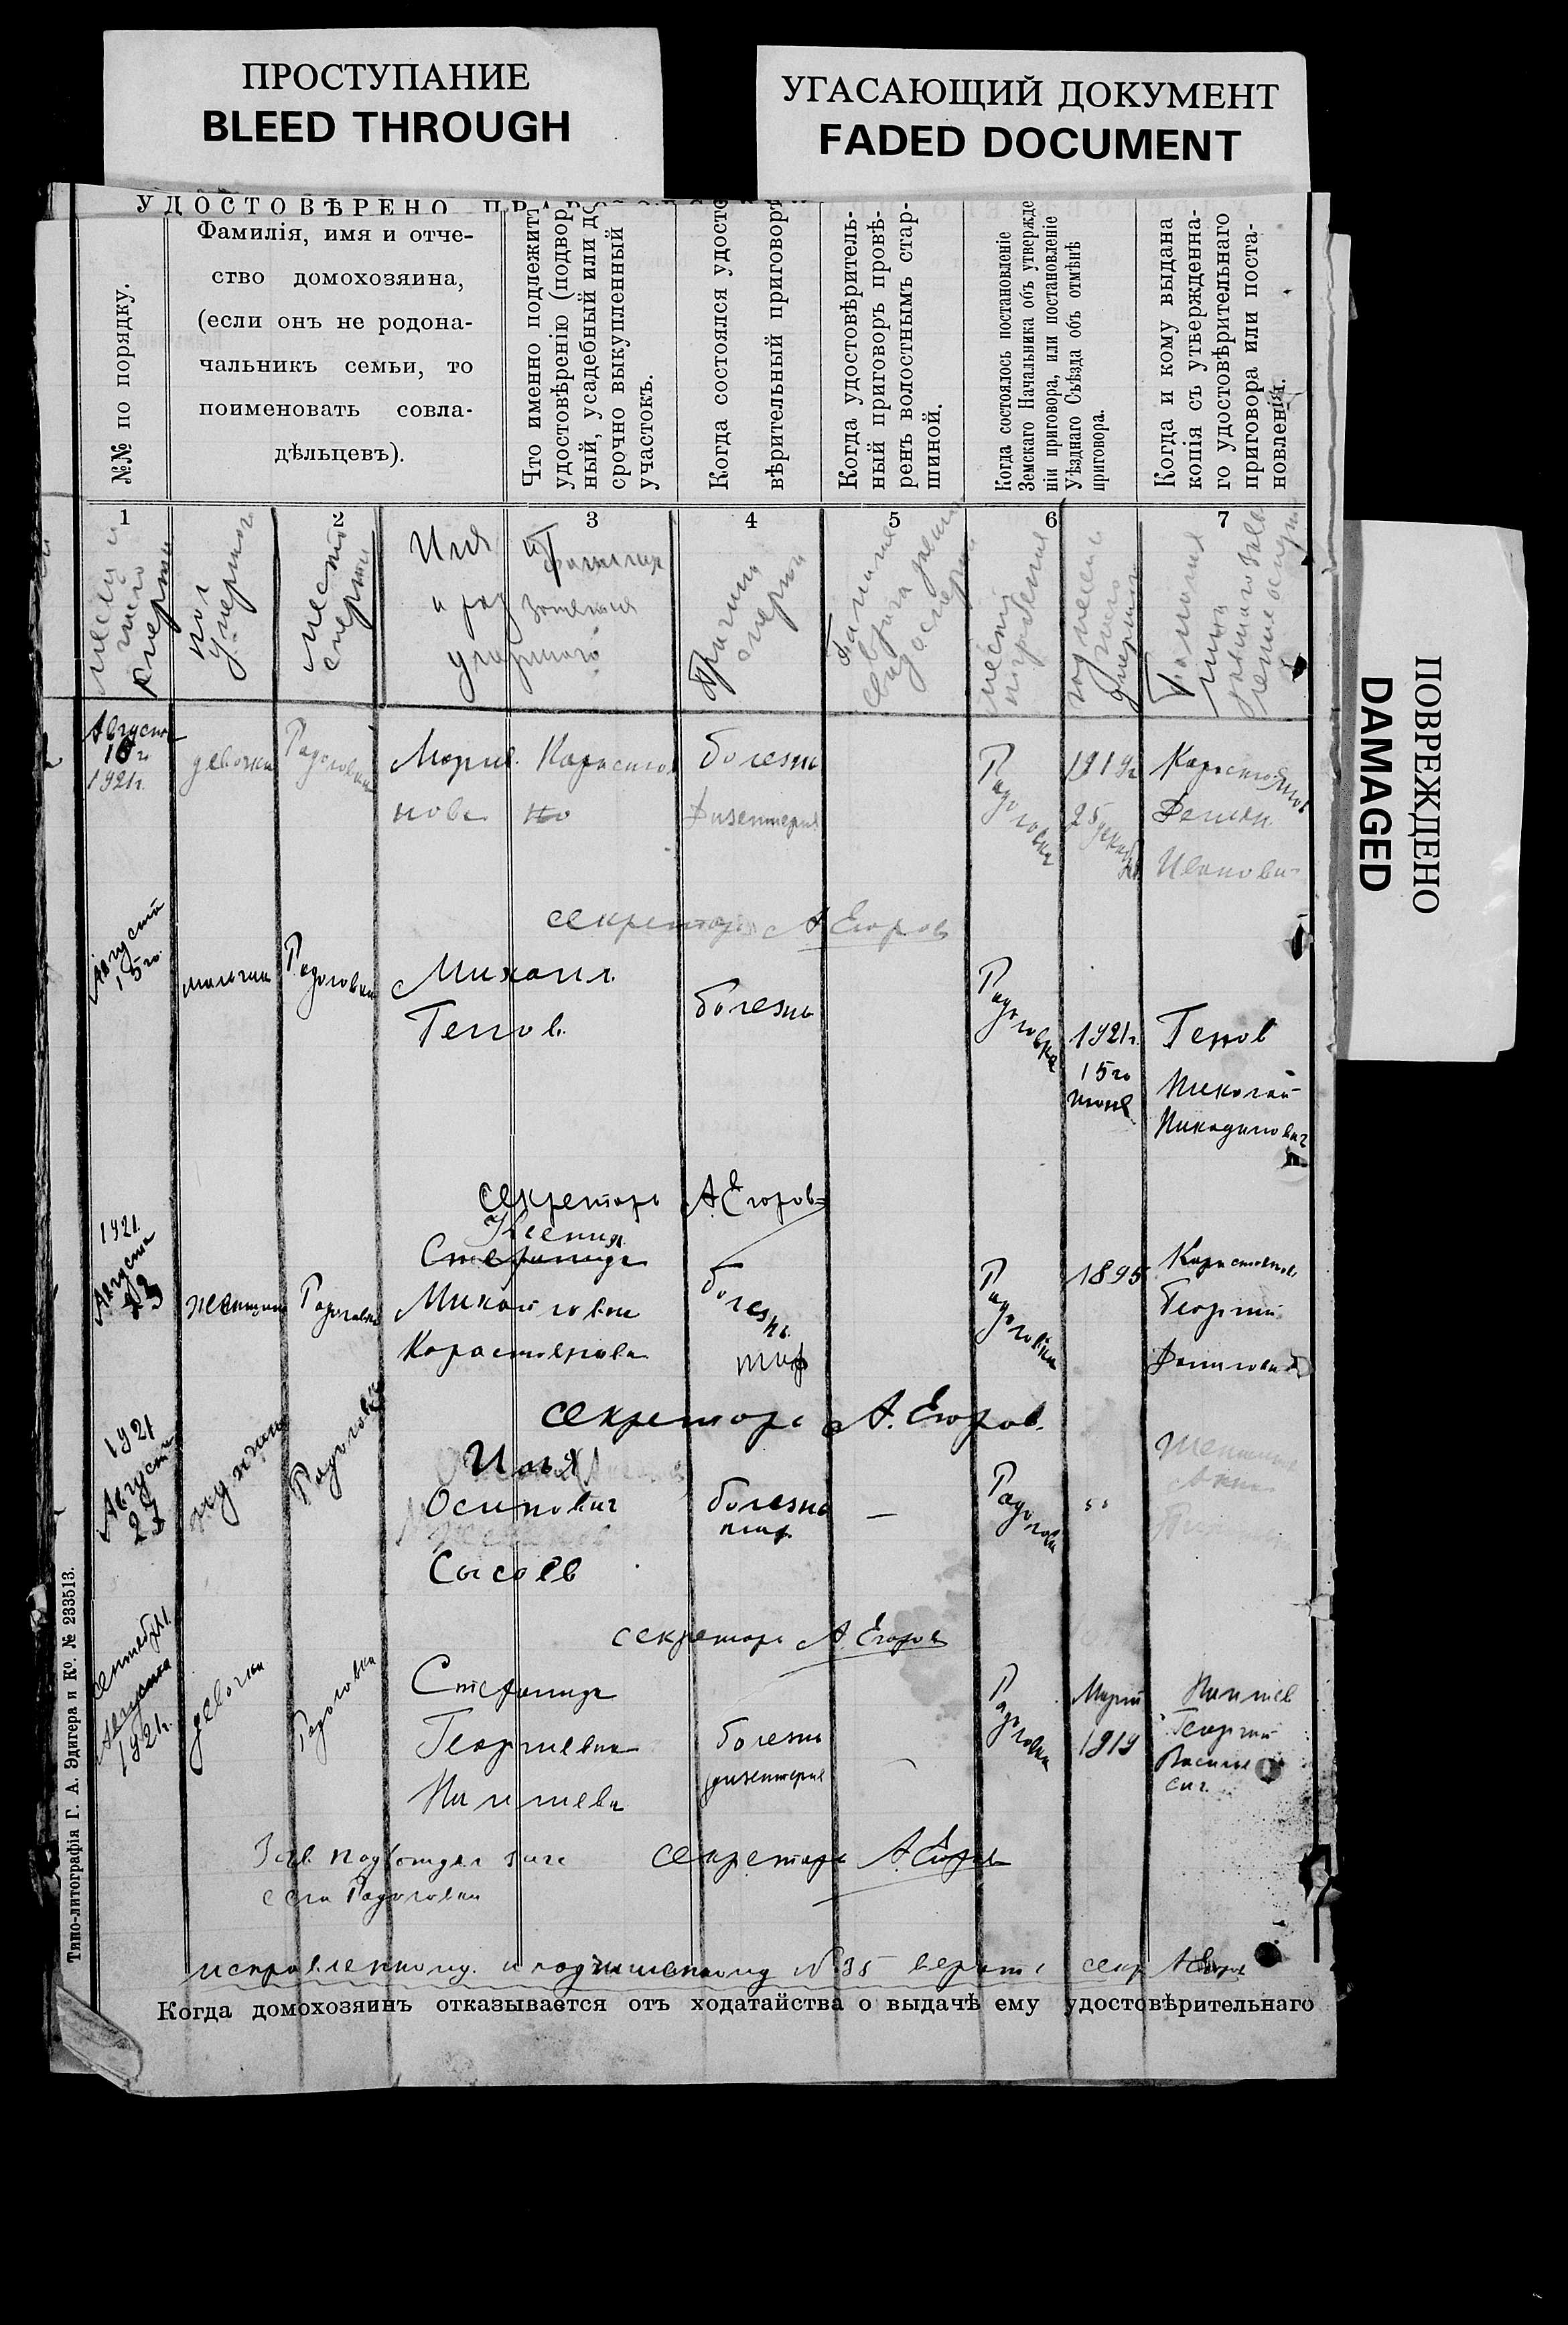 ПРОСТУПАНИЕ
BLEED THROUGH
УГАСАЮЩИЙ ДОКУМЕНТ
FADED DOCUMENT
ПОВРЕЖДЕНО
DAMAGED
УДОСТОВѢРЕНО
№№ по порядку.
Фамилія, имя и отче-
ство домохозяина,
(если онъ не родона-
чальникъ семьи, то
поименовать совла-
дѣльцевъ).
Что именно подлежитъ
удостовѣренію (подвор
ный, усадебный или до
срочно выкупленный
участокъ.
Когда состоялся удосто
вѣрительный приговоръ
Когда удостовѣритель-
ный приговоръ провѣ-
ренъ волостнымъ стар-
шиной.
Когда состоялось постановленіе
Земскаго Начальника объ утвержде
ніи приговора, или постановленіе
Уѣзднаго Съѣзда объ отмѣнѣ
приговора.
Когда и кому выдана
копія съ утвержденна-
го удостовѣрительнаго
приговора или поста-
новленія.
1 2 3 4 5 6 7
пол
умершого
место
смерти
Имя и Фамилия
и род занятия
умершого
Причина
смерти
место
погребения
Августа
16го
1921г.
девочка
Радоловка
Мария
болезнь
дизентерия
Радоловка
1919г
25 декабр
Иванови
секретарь А Егоров
Августа
15го
мальчик
Радоловка
Михаил
Генов
болезнь
Радоловка
1921г.
15го
июня
Генов
Николай
Никодимович
секретарь А. Егоров
1921
Августа
23
женщина
Радоловка
Ксения
Стефанида
Михайловна
Карастоянова
болезнь
тиф
Радоловка
1895
Карастоянов
Георгий
секретарь А. Егоров
1921
Августа
27
мужчина
Радоловка
Илья
Осипович
Сысоев
болезнь
тиф
—
Радоловка
"
секретарь А. Егоров
Сентября
Августа
1921г.
девочка
Радоловка
Стефанида
Георгиевна
болезнь
дизентерия
Радоловка
Март
1919
Георгий
Зав. подотдел загс
села Радоловки
секретарь А Егоров
исправленному и подчищенному № 35 верить секр А Егоров
Когда домохозяинъ отказывается отъ ходатайства о выдачѣ ему удостовѣрительнаго
Типо-литографія Г. А. Эдигера и Ко. № 233513.